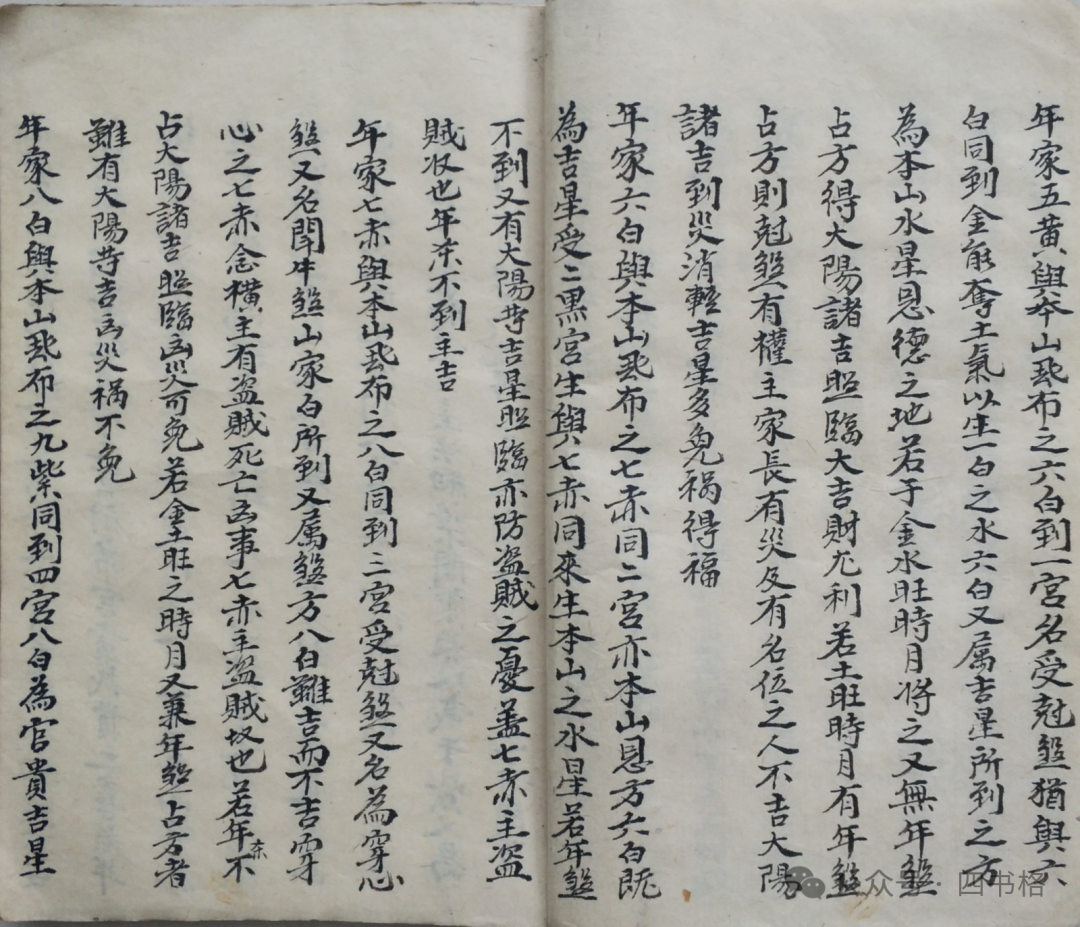 年家五黄與本山飛布之六白到一宮名受尅煞猶與六
白同到金能奪土氣以生一白之水六白又属吉星所到之方
為本山水星恩德之地若于金水旺時月将之又無年煞
占方得大陽諸吉照臨大吉財尤利若土旺時月有年煞
占方則尅煞有權主家長有災及有名位之人不吉大陽
諸吉到災消輕吉星多免禍得福
年家六白與本山飛布之七赤同二宮亦本山恩方六白既
為吉星受二黒宮生與七赤同來生本山之水星若年煞
不到又有大陽等吉星照臨亦防盗賊之憂盖七赤主盗
賊收也年杀不到主吉
年家七赤與本山飛布之八白同到三宮受尅煞又名為穿心
煞又名闘牛煞山家白所到又属煞方八白雖吉而不吉穿
心之七赤念横主有盗賊死亡凶事七赤主盗賊故也若年杀不
占大陽諸吉照臨凶災可免若金土旺之時月又兼年煞占方者
雖有大陽等吉凶災禍不免
年家八白與本山飛布之九紫同到四宮八白為官貴吉星
众号·四书格